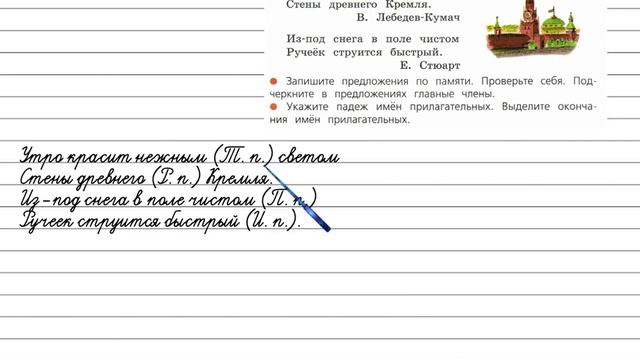 Стены древнего Кремля.
В. Лебедев-Кумач
Из-под снега в поле чистом
Ручеёк струится быстрый.
Е. Стюарт
● Запишите предложения по памяти. Проверьте себя. Под-
черкните в предложениях главные члены.
● Укажите падеж имён прилагательных. Выделите оконча-
ния имён прилагательных.
Утро красит нежным (Т. п.) светом
Стены древнего (Р. п.) Кремля.
Из-под снега в поле чистом (П. п.)
Ручеек струится быстрый (И. п.).